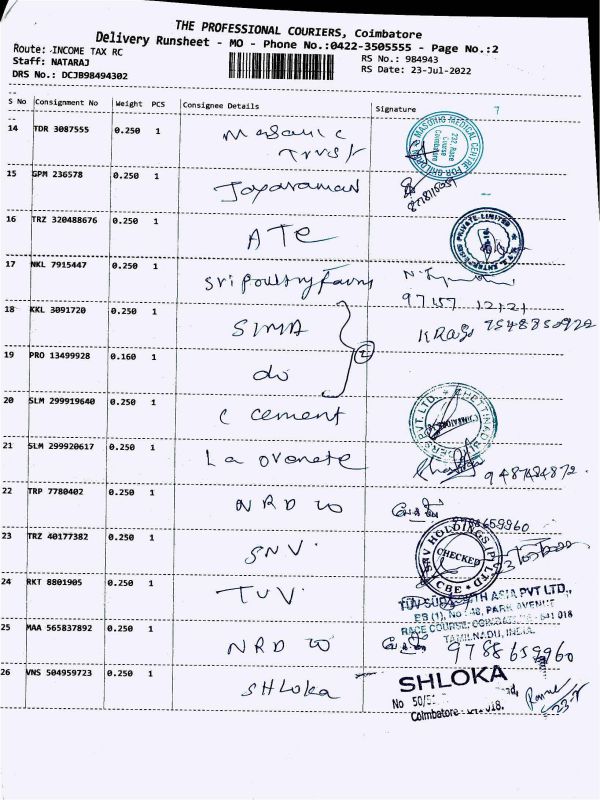 THE PROFESSIONAL COURIERS, Coimbatore
Delivery Runsheet - MO - Phone No.:0422-3505555 - Page No.:2
Route: INCOME TAX RC
Staff: NATARAJ
DRS No.: DCJB98494302
RS No.: 984943
RS Date: 23-Jul-2022
S No Consignment No Weight PCS Consignee Details Signature
14 TDR 3087555 0.250 1 Masonic
Trust
MASONIC MEDICAL CENTRE FOR CHILDREN
232, Race
Course
Coimbatore
15 GPM 236578 0.250 1 Jayaraman
16 TRZ 320488676 0.250 1 ATE
PRIVATE LIMITED
17 NKL 7915447 0.250 1 Sri Poultry Farms
97157 12121
18 KKL 3091720 0.250 1 SIMA
K Raju 7548850922
19 PRO 13499928 0.160 1 do
2
20 SLM 299919640 0.250 1 C cement
CHETTINAD
PVT. LTD.
21 SLM 299920617 0.250 1
9487484872
22 TRP 7780402 0.250 1 NRD 20
9788659960
23 TRZ 40177382 0.250 1 SNV
SNV HOLDINGS (P) LTD
CHECKED
CBE
24 RKT 8801905 0.250 1 TUV
TUV SUD SOUTH ASIA PVT LTD.,
ES (1), No : 48, PARK AVENUE
RACE COURSE, COIMBATORE - 641 018
TAMILNADU, INDIA.
25 MAA 565837892 0.250 1 NRD 20
9788659960
26 VNS 504959723 0.250 1 SHLOKA
SHLOKA
No 50/51
Coimbatore